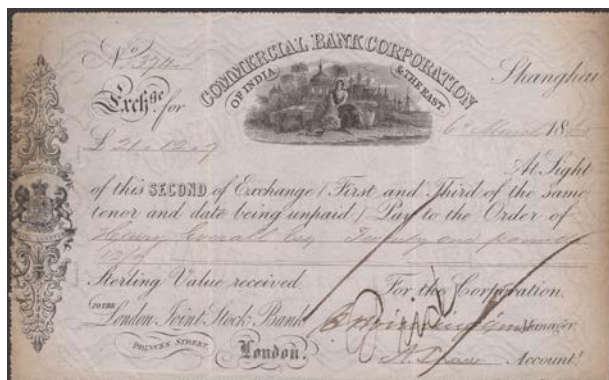 No. 374
COMMERCIAL BANK CORPORATION
OF INDIA & THE EAST
Shanghai
Exchge for
6 March 186
£ 21 " 12 " 9
At Sight
of this SECOND of Exchange (First and Third of the same
tenor and date being unpaid) Pay to the Order of
Henry Everall Esq Twenty one pounds
12/9
Sterling Value received. For the Corporation.
TO THE
London Joint Stock Bank
Manager
Paid
PRINCES STREET,
London.
Accountt